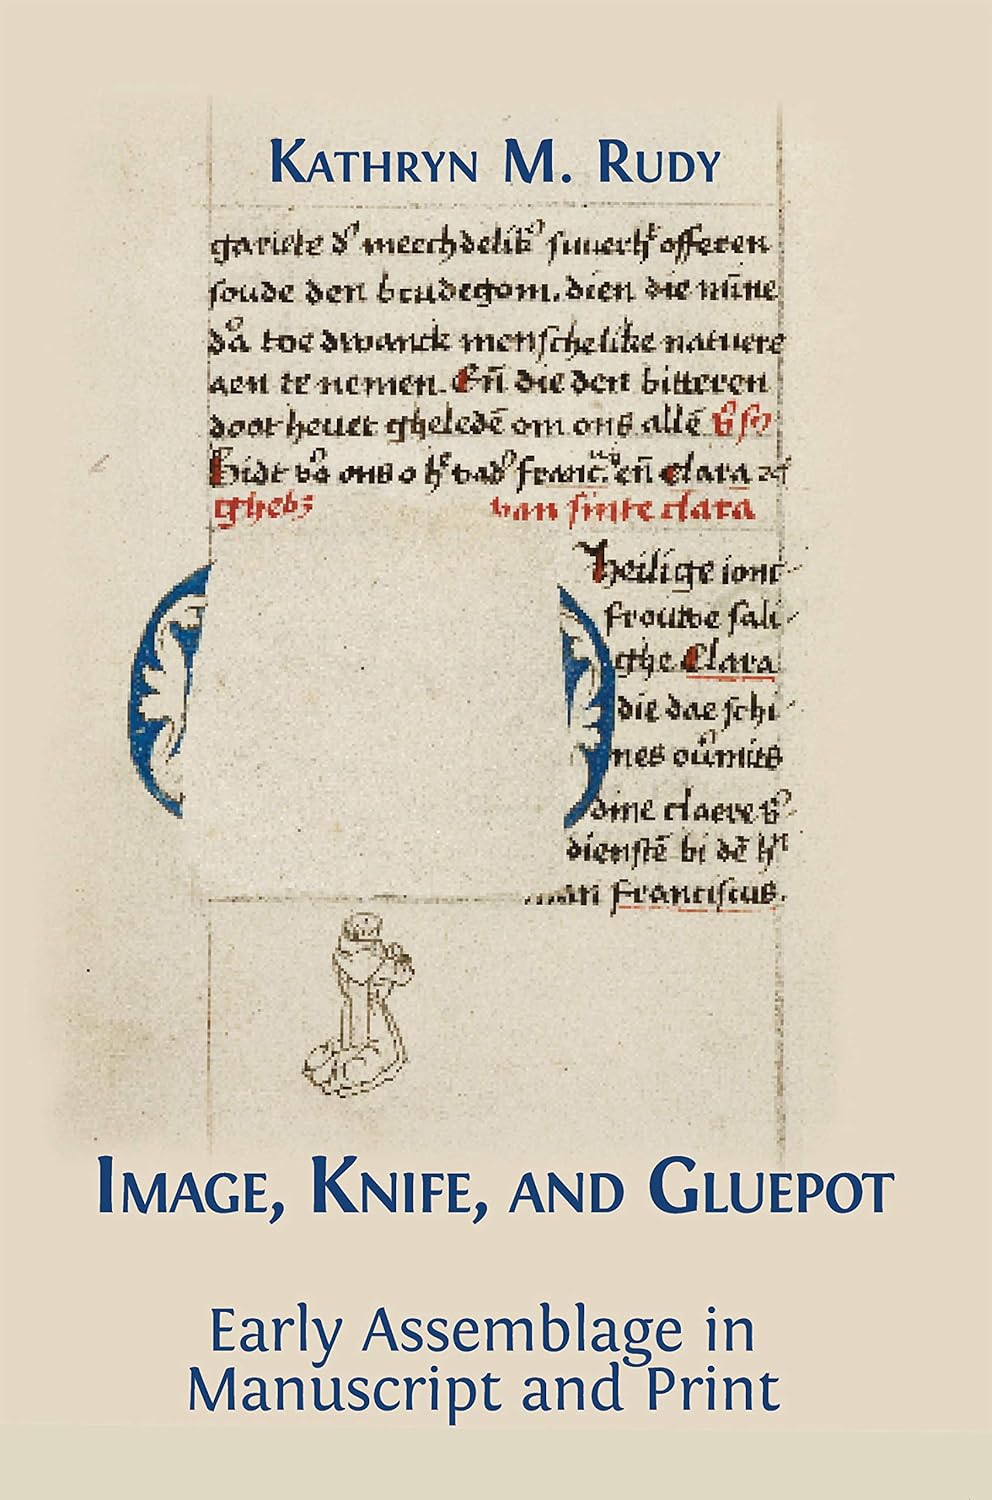 KATHRYN M. RUDY
gariete dʼ meechdelikʼ suuerhʼ offeren
soude den brudegom. dien die mīne
dʼā toe dwanck menschelike natuere
aen te nemen. Eñ die den bitteren
doot heuet gheledē om ons allē
Bidt vʼō ons o hʼ vadʼ franc̄. eñ clara
ghebꝫ van sinte clara
heilige ionc
frouwe sali
ghe Clara
die dae schi
nes ouʼmits
dine claere
dienstē bi dē hʼⁿ
man Franciscus.
IMAGE, KNIFE, AND GLUEPOT
Early Assemblage in
Manuscript and Print